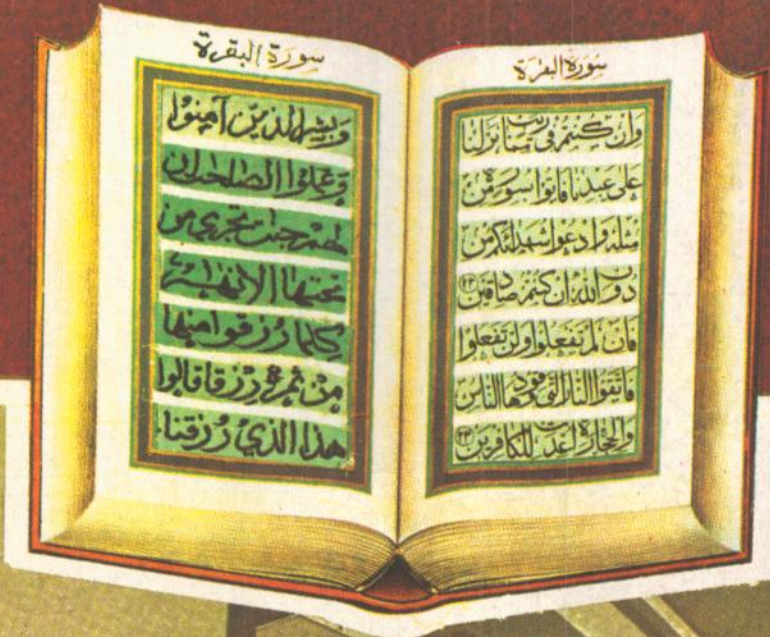 سورة البقرة
وان كنتم في ريب مما نزلنا
على عبدنا فاتوا بسورة من
مثله وادعوا شهدائكم من
دون الله ان كنتم صادقين ٢٣
فان لم تفعلوا ولن تفعلوا
فاتقوا النار التي وقودها الناس
والحجارة اعدت للكافرين ٢٤
سورة البقرة
وبشر الذين آمنوا
وعملوا الصالحات
لهم جنات تجري من
تحتها الانهار
كلما رزقوا منها
من ثمرة رزقا قالوا
هذا الذي رزقنا